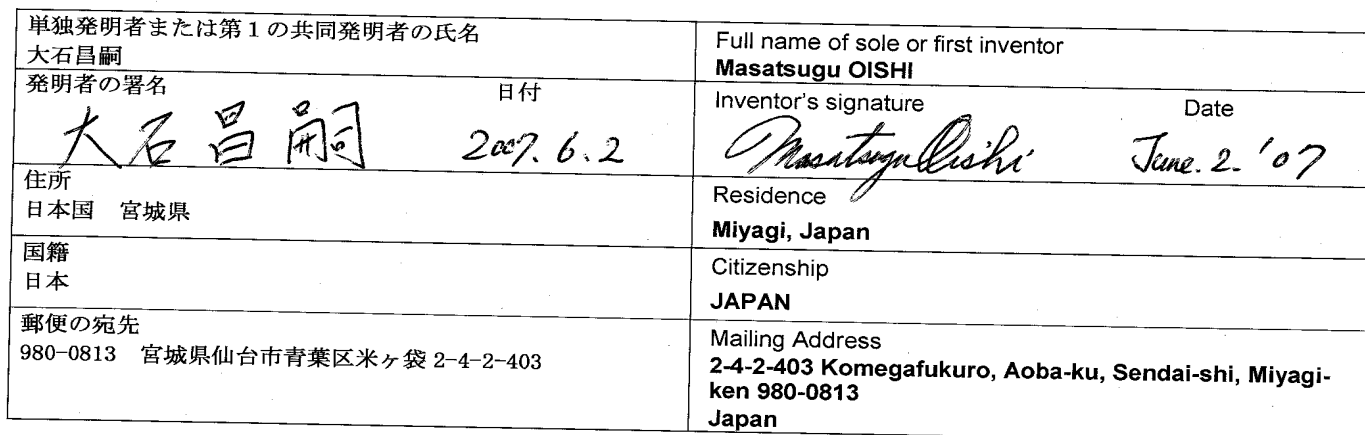 単独発明者または第1の共同発明者の氏名
大石昌嗣
Full name of sole or first inventor
Masatsugu OISHI
発明者の署名 日付
大石昌嗣 2007. 6. 2
Inventor's signature Date
Masatsugu Oishi June. 2. '07
住所
日本国 宮城県
Residence
Miyagi, Japan
国籍
日本
Citizenship
JAPAN
郵便の宛先
980-0813 宮城県仙台市青葉区米ヶ袋 2-4-2-403
Mailing Address
2-4-2-403 Komegafukuro, Aoba-ku, Sendai-shi, Miyagi-
ken 980-0813
Japan